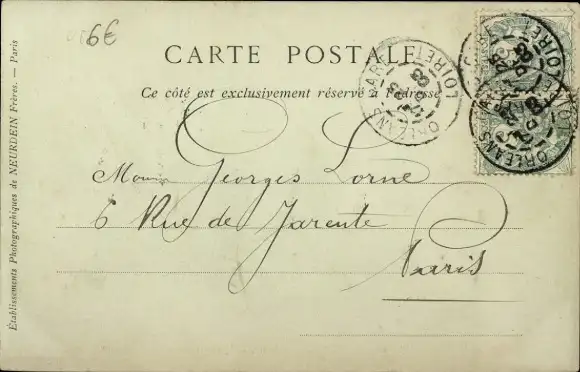 6€
CARTE POSTALE
Ce côté est exclusivement réservé à l'adresse
Georges Lorne
6 Rue de Jarente
Paris
Établissements Photographiques de NEURDEIN Frères. — Paris
ORLÉANS GARE
LOIRET
ORLÉANS
LOIRET